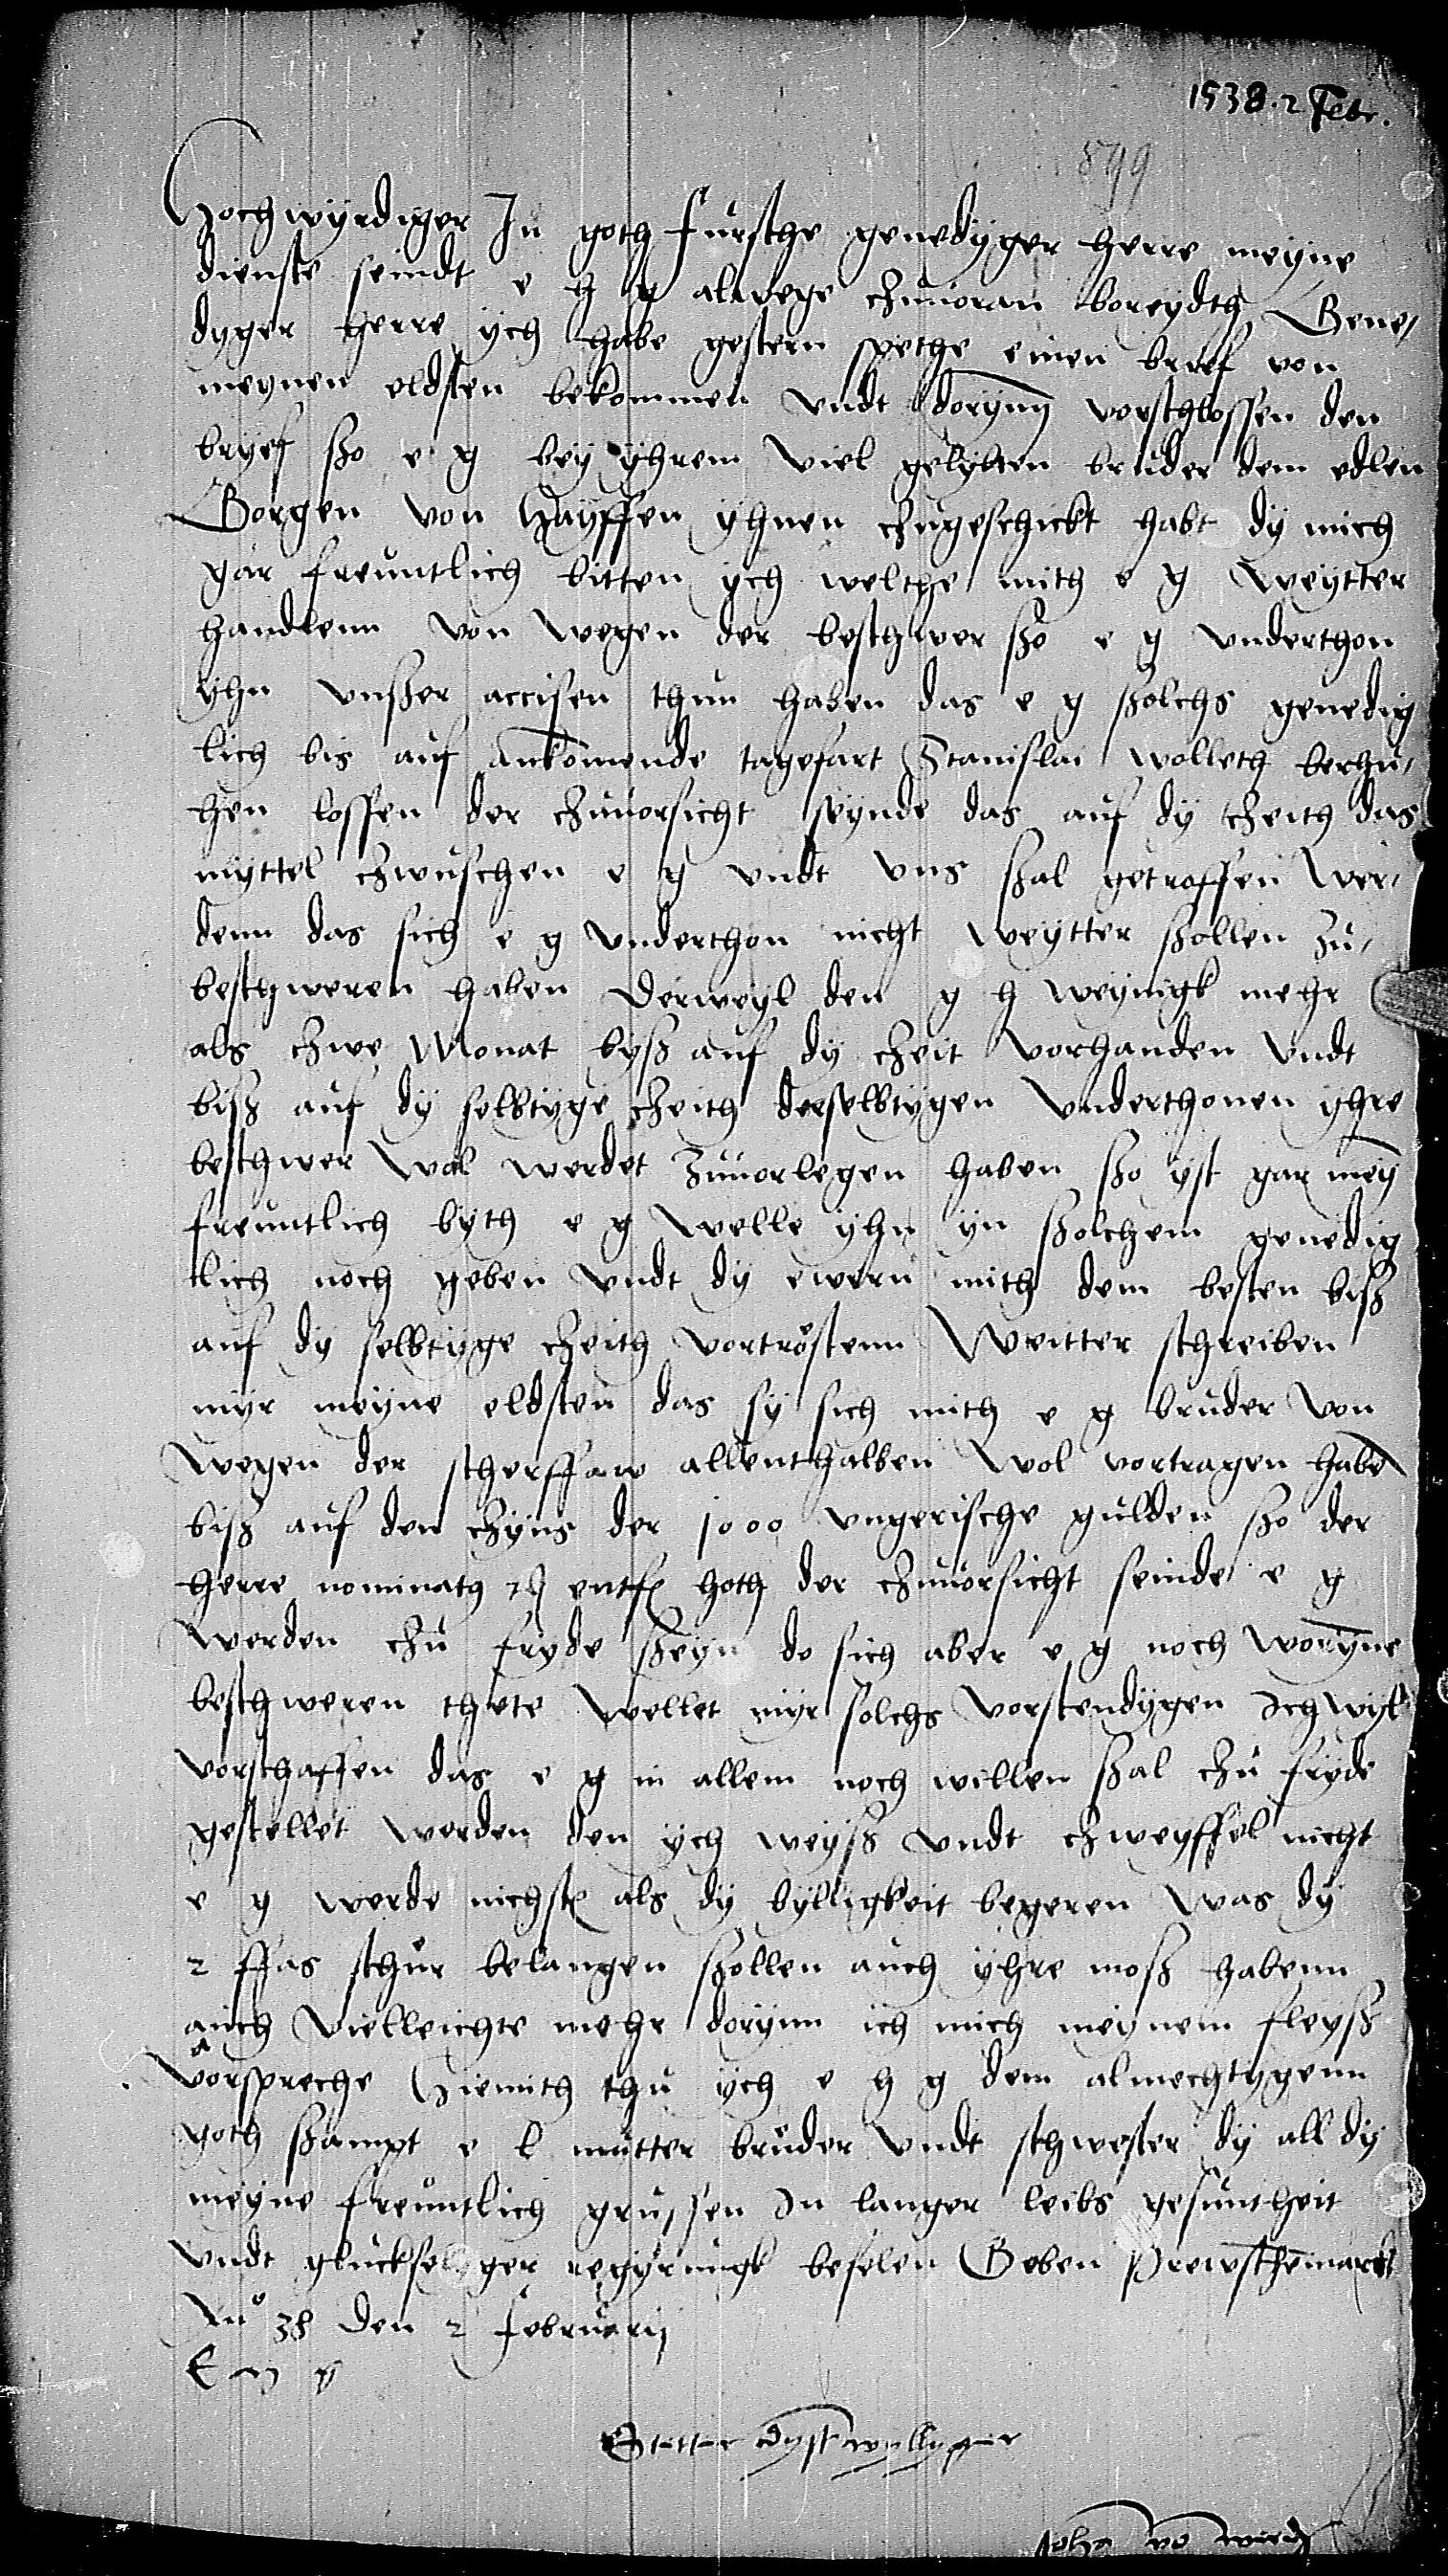 1538. 2 Febr.
899
Hochwyrdiger In goth fursthe genedyger herre meyne
dienste seindt e h g alwege chuuoran boreydth Gene,
dyger herre ych habe gestern spethe einen brief von
meynen eldsten bekommen undt doryn vorschlossen den
bryef sso e g bey yhrem viel gelybten bruder dem edlen
Gorgen von Hayssen yhnen chugeschickt habt dy mich
gar freuntlich bitten ych welthe mith e g weytter
handlenn von wegen der beschwer sso e g underthon
yhn unsser accisen thun haben das e g ssolchs genedig
lich bis auf ankomende tagefart Stanislai wolleth berhu,
hen lossen der chuuorsicht seynde das auf dy cheith das
myttel chwuschen e g undt uns ssal getroffen wer,
denn das sich e g underthon nicht weytter ssollen zu,
beschweren haben Derweyl den g h weynigk mehr
als chwe Monat byss auf dy cheit vorhanden undt
biss auf dy selbtyge cheith derselbtygen underthonen yhre
beschwer wol werdet zuuorlegen haben sso yst gar meyn
freuntlich byth e g welle yhn yn ssolchem genedig
tlich noch geben undt dy ewern mith dem besten biss
auf dy selbtyge cheith vortröstenn Weitter schreiben
myr meyne eldsten das sy sich mith e g bruder von
wegen der scherffaw allenthalben wol vortragen habe
biss auf den chyns der 1000 ungerische gulden sso der
herre nominath entf hoth der chuuorsicht seinde e g
werden chu fryde sseyn do sich aber e g noch worynne
beschweren thete wellet myr solchs vorstendygen Ich wyl
vorschaffen das e g in allem noch willen ssal chu fryde
gestellet werden den ych weyss undt chweyffel nicht
e g werde nichst als dy bylligkeit begeren Was dy
2 ffas belangen ssollen auch yhre moss habenn
auch vielleichte mehr dorynn ich mich meynem fleyss
vorspreche Hiemith thu ych e h g dem almechtygenn
goth ssampt e l mutter bruder undt schwester dy all dy
meyne freuntlich grussen In langer leibs gesuntheit
undt gluckselyger regyrungk befelen Geben Prewschemarkt
Anno 38 den 2 Februarij
E g
dystwyllyger